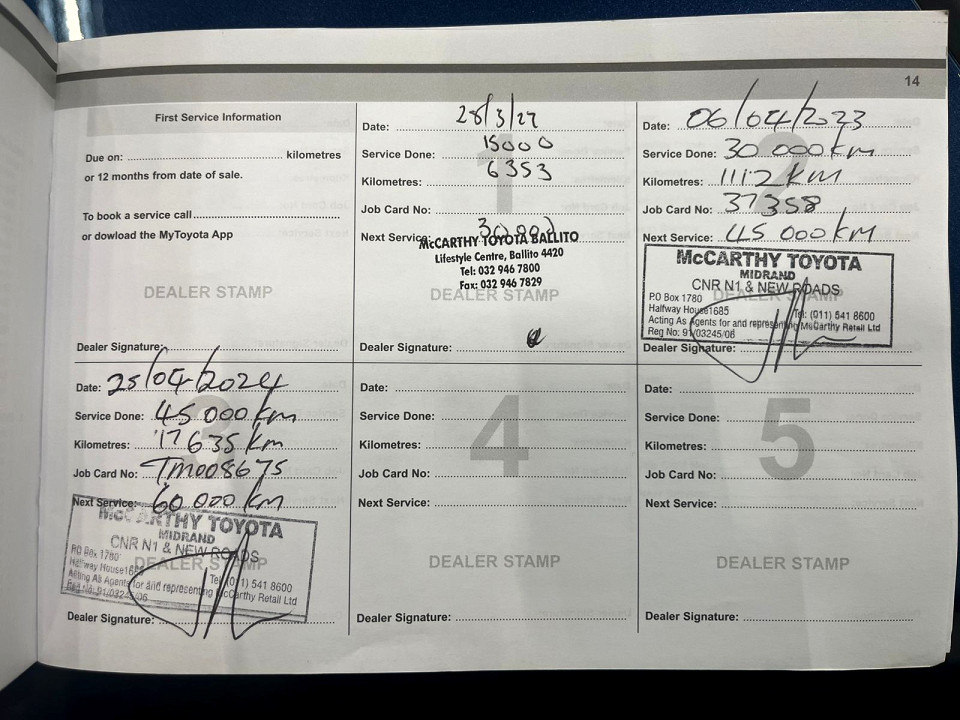 14
First Service Information
Due on: ........ kilometres
or 12 months from date of sale.
To book a service call........
or dowload the MyToyota App
DEALER STAMP
Dealer Signature:
1
Date: 28/3/22
Service Done: 15000
Kilometres: 6353
Job Card No:
Next Service: 30 000
McCARTHY TOYOTA BALLITO
Lifestyle Centre, Ballito 4420
Tel: 032 946 7800
Fax: 032 946 7829
DEALER STAMP
Dealer Signature:
2
Date: 06/04/2023
Service Done: 30 000 km
Kilometres: 11112 km
Job Card No: 37358
Next Service: 45 000 km
McCARTHY TOYOTA
MIDRAND
CNR N1 & NEW ROADS
P.O Box 1780
Halfway House1685 Tel: (011) 541 8600
Acting As Agents for and representing McCarthy Retail Ltd
Reg No: 91/03245/06
Dealer Signature:
3
Date: 25/04/2024
Service Done: 45 000 km
Kilometres: 17 635 km
Job Card No: TM008675
Next Service: 60 000 km
McCARTHY TOYOTA
MIDRAND
CNR N1 & NEW ROADS
PO Box 1780
Halfway House1685 Tel: (011) 541 8600
Acting As Agents for and representing McCarthy Retail Ltd
Reg No: 91/03245/06
DEALER STAMP
Dealer Signature:
4
Date:
Service Done:
Kilometres:
Job Card No:
Next Service:
DEALER STAMP
Dealer Signature:
5
Date:
Service Done:
Kilometres:
Job Card No:
Next Service:
DEALER STAMP
Dealer Signature: